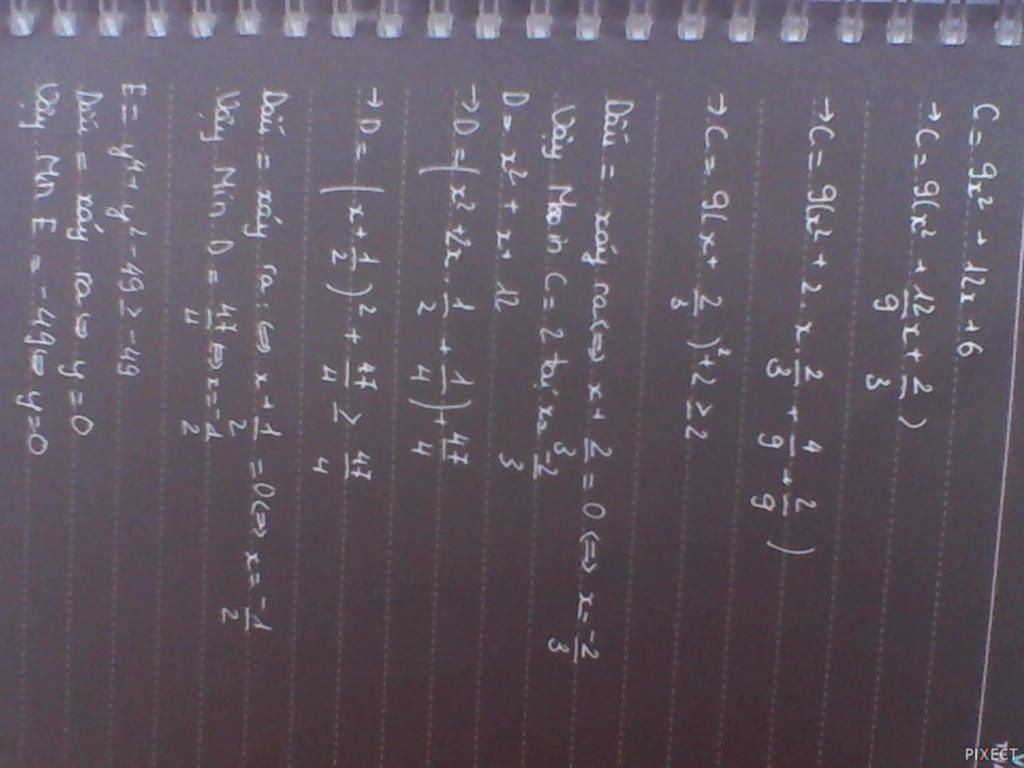 C = 9x² + 12x + 6
→ C = 9(x² + 12/9 x + 2/3)
→ C = 9(x² + 2.x.2/3 + 4/9 + 2/9)
→ C = 9(x + 2/3)² + 2 ≥ 2
Dấu = xảy ra ⇔ x + 2/3 = 0 ⇔ x = -2/3
Vậy Min C = 2 tại x = -2/3
D = x² + x + 12
→ D = (x² + 2x.1/2 + 1/4) + 47/4
→ D = (x + 1/2)² + 47/4 ≥ 47/4
Dấu = xảy ra ⇔ x + 1/2 = 0 ⇔ x = -1/2
Vậy Min D = 47/4 ⇔ x = -1/2
E = y⁴ + y² - 49 ≥ -49
Dấu = xảy ra ⇔ y = 0
Vậy Min E = -49 ⇔ y = 0
PIXECT